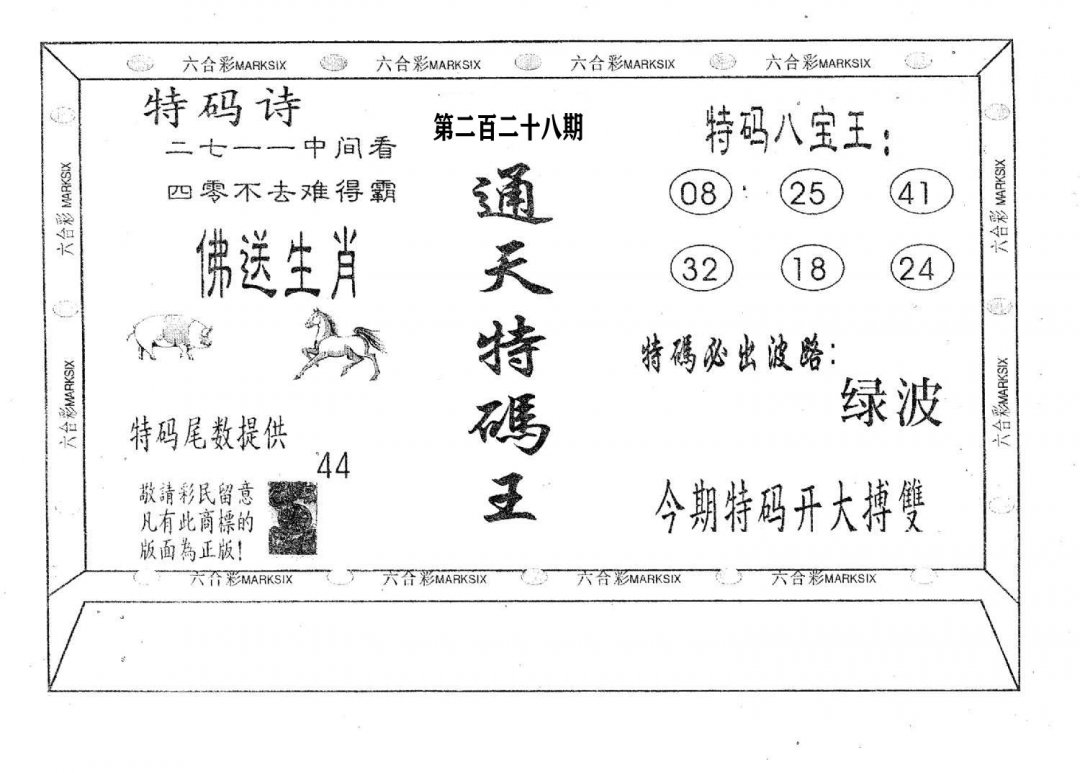 六合彩MARKSIX 六合彩MARKSIX 六合彩MARKSIX 六合彩MARKSIX
特码诗
二七一一中间看
四零不去难得霸
佛送生肖
特码尾数提供
44
敬請彩民留意
凡有此商標的
版面為正版!
第二百二十八期
通
天
特
碼
王
特码八宝王:
08 25 41
32 18 24
特碼必出波路:
绿波
今期特码开大搏雙
六合彩MARKSIX
六合彩MARKSIX
六合彩MARKSIX
六合彩MARKSIX
六合彩MARKSIX 六合彩MARKSIX 六合彩MARKSIX 六合彩MARKSIX